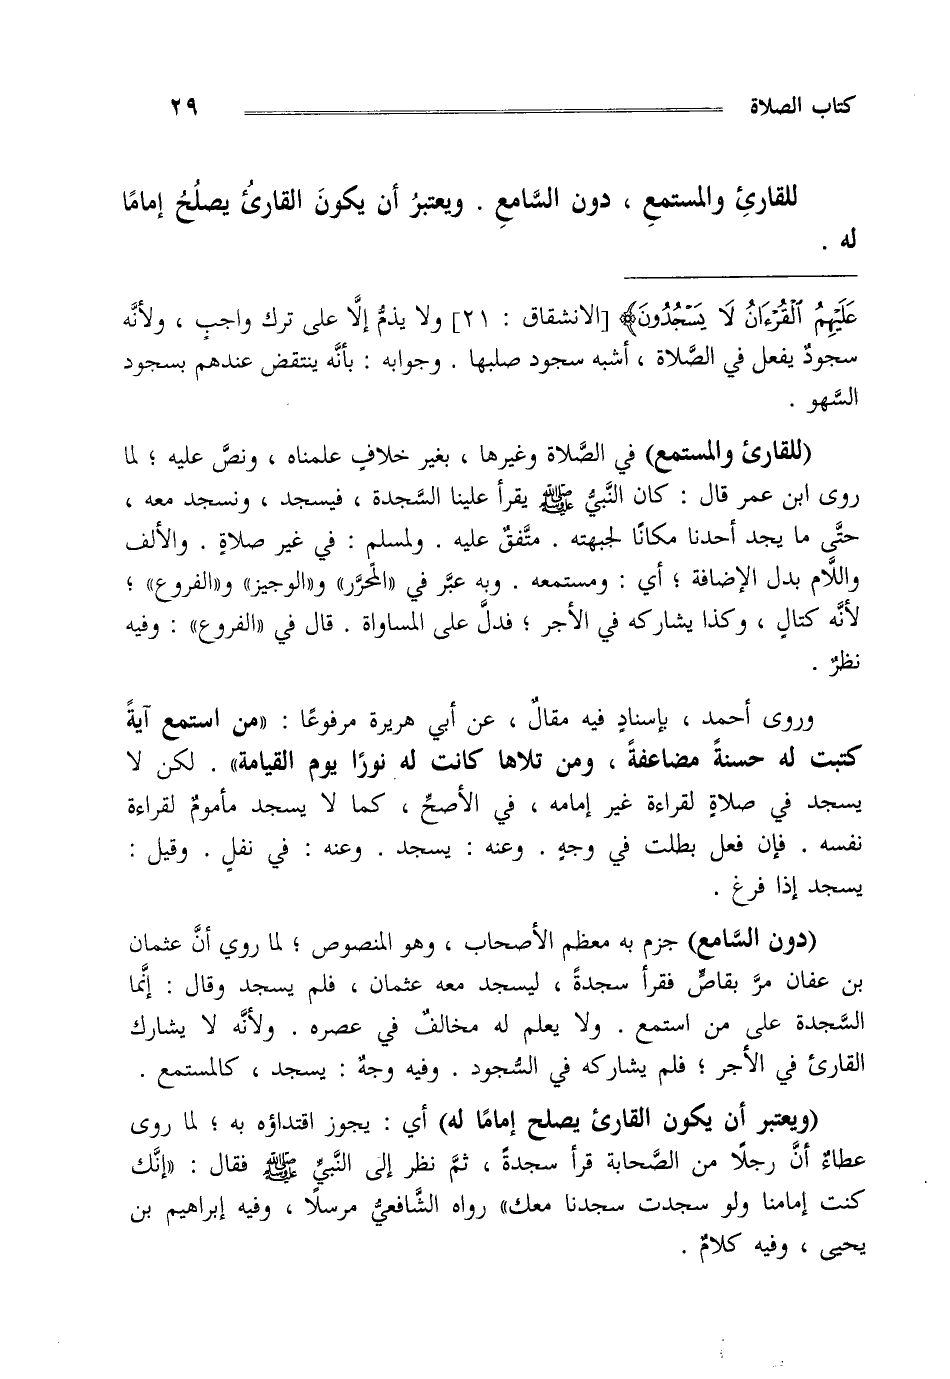 كتاب الصلاة ٢٩
للقارئِ والمستمعِ ، دون السَّامعِ . ويعتبرُ أن يكونَ القارئُ يصلُحُ إمامًا
له .
عَلَيْهِمُ ٱلْقُرْءَانُ لَا يَسْجُدُونَ﴾ [الانشقاق : ٢١] ولا يذمُّ إلَّا على ترك واجبٍ ، ولأنَّه
سجودٌ يفعل في الصَّلاة ، أشبه سجود صلبها . وجوابه : بأنَّه ينتقض عندهم بسجود
السَّهو .
(للقارئ والمستمع) في الصَّلاة وغيرها ، بغير خلافٍ علمناه ، ونصَّ عليه ؛ لما
روى ابن عمر قال : كان النَّبيُّ ﷺ يقرأ علينا السَّجدة ، فيسجد ، ونسجد معه ،
حتَّى ما يجد أحدنا مكانًا لجبهته . متَّفقٌ عليه . ولمسلم : في غير صلاةٍ . والألف
واللَّام بدل الإضافة ؛ أي : ومستمعه . وبه عبَّر في «المحَّرر» و«الوجيز» و«الفروع» ؛
لأنَّه كتالٍ ، وكذا يشاركه في الأجر ؛ فدلَّ على المساواة . قال في «الفروع» : وفيه
نظرٌ .
وروى أحمد ، بإسنادٍ فيه مقالٌ ، عن أبي هريرة مرفوعًا : «من استمع آيةً
كتبت له حسنةً مضاعفةً ، ومن تلاها كانت له نورًا يوم القيامة» . لكن لا
يسجد في صلاةٍ لقراءة غير إمامه ، في الأصحِّ ، كما لا يسجد مأمومٌ لقراءة
نفسه . فإن فعل بطلت في وجهٍ . وعنه : يسجد . وعنه : في نفلٍ . وقيل :
يسجد إذا فرغ .
(دون السَّامع) جزم به معظم الأصحاب ، وهو المنصوص ؛ لما روي أنَّ عثمان
بن عفان مرَّ بقاصٍّ فقرأ سجدةً ، ليسجد معه عثمان ، فلم يسجد وقال : إنَّما
السَّجدة على من استمع . ولا يعلم له مخالفٌ في عصره . ولأنَّه لا يشارك
القارئ في الأجر ؛ فلم يشاركه في السُّجود . وفيه وجهٌ : يسجد ، كالمستمع .
(ويعتبر أن يكون القارئ يصلح إمامًا له) أي : يجوز اقتداؤه به ؛ لما روى
عطاءٌ أنَّ رجلًا من الصَّحابة قرأ سجدةً ، ثمَّ نظر إلى النَّبيِّ ﷺ فقال : «إنَّك
كنت إمامنا ولو سجدت سجدنا معك» رواه الشَّافعيُّ مرسلًا ، وفيه إبراهيم بن
يحيى ، وفيه كلامٌ .